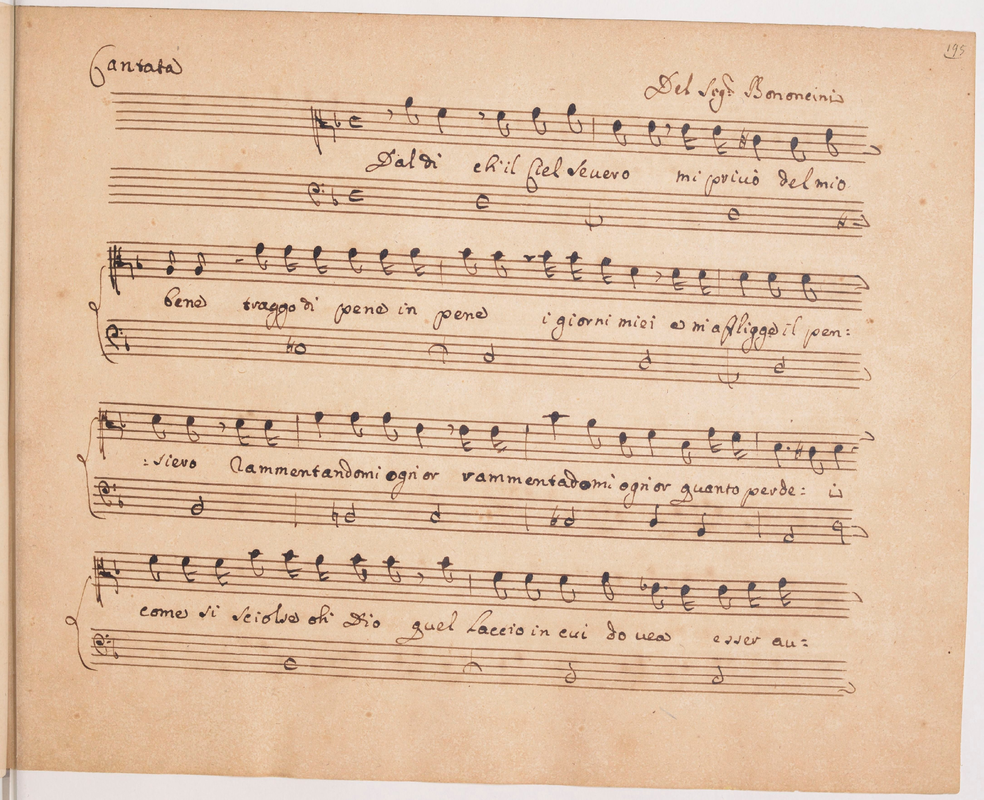 Cantata
195
Del Sigr. Bononcini
Dal di ch'il Ciel seuero mi priuò del mio
bene traggo di pene in pene i giorni miei e m'affligge il pen:
:siero Rammentandomi ogn'or rammentadomi ogn'or quanto perde: i
come si sciolse oh Dio quel laccio in cui douea esser au: